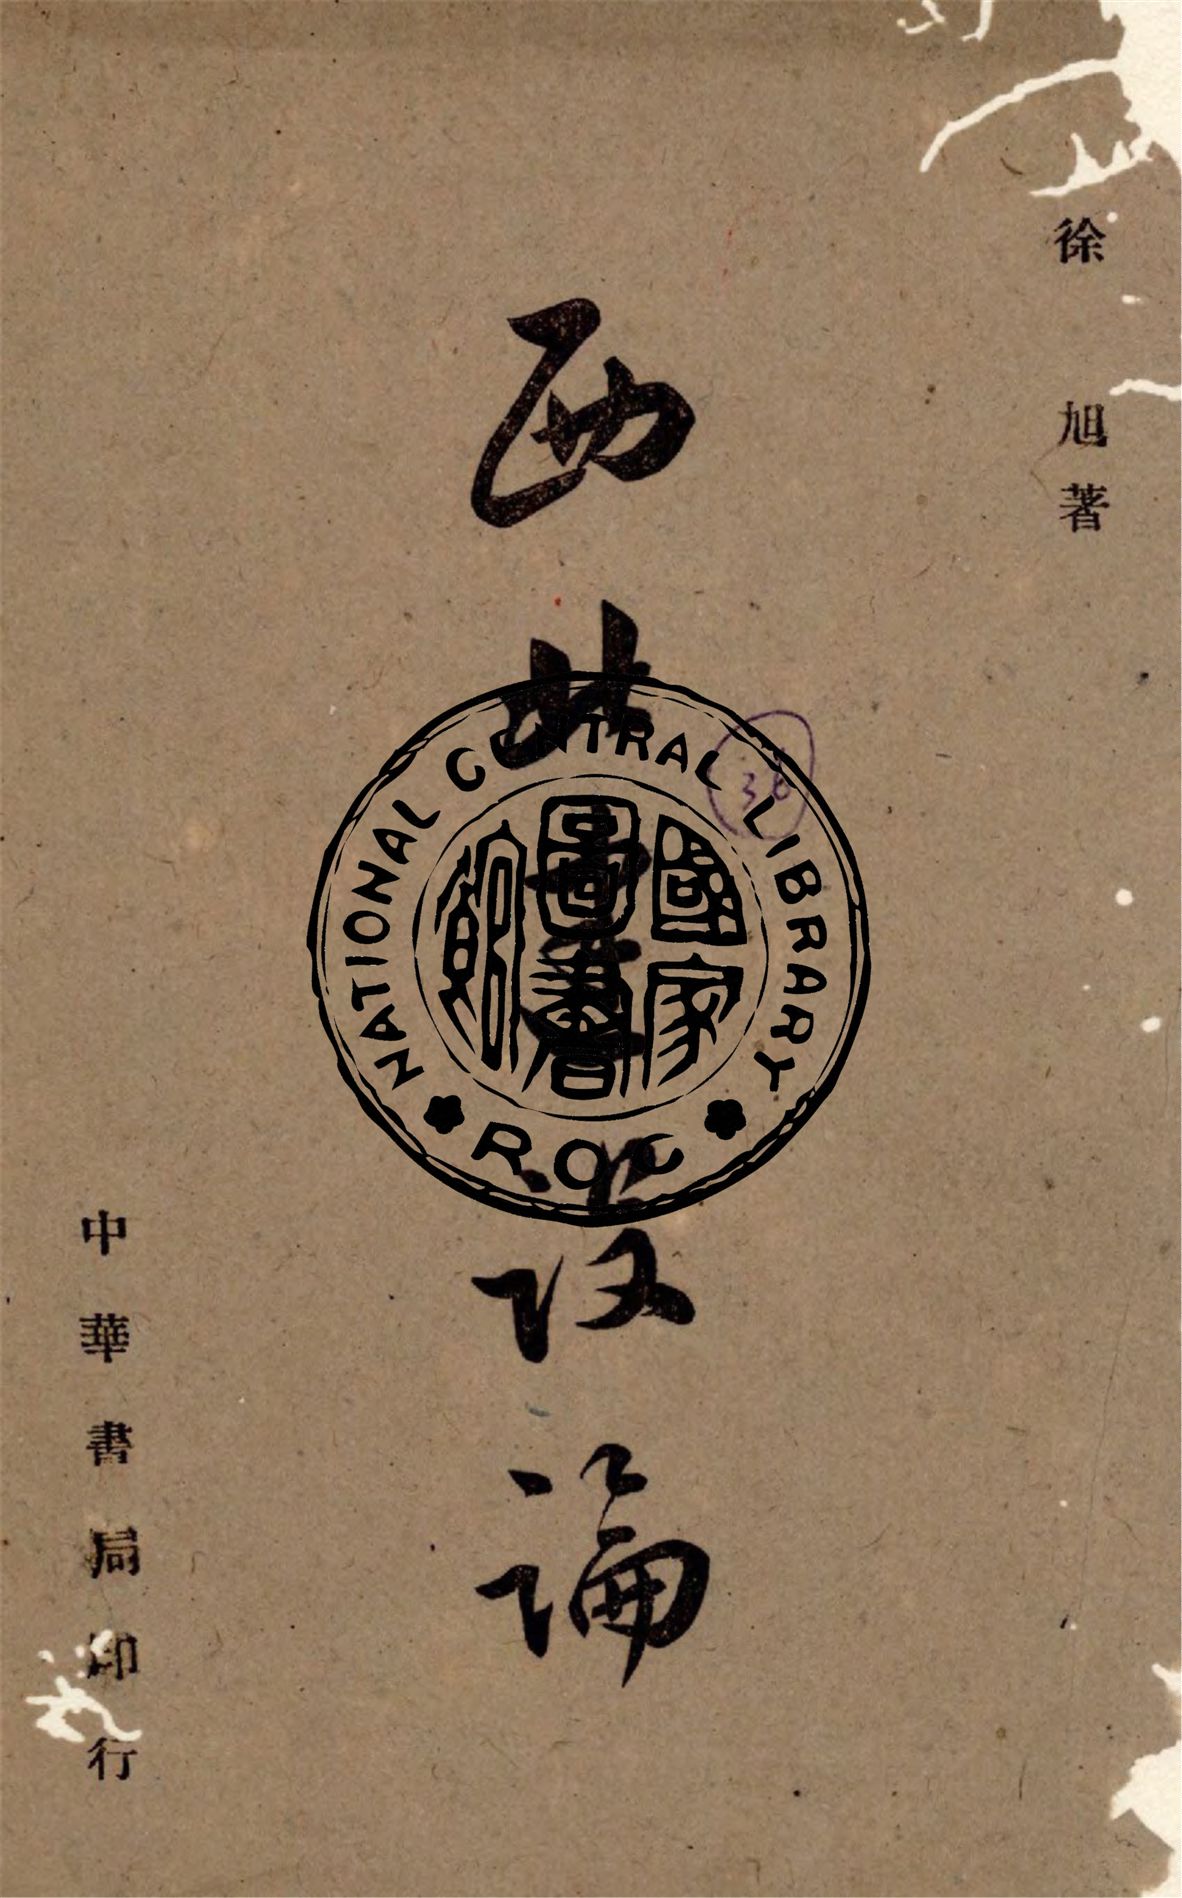 徐旭著
西北建設論
中華書局印行
NATIONAL CENTRAL LIBRARY
國家圖書館
ROC
36